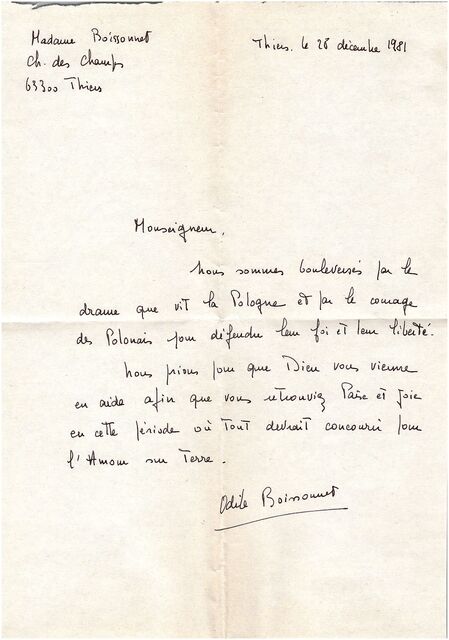 Madame Boissonnet
Thiers, le 28 décembre 1981
Ch. des Champs
63300 Thiers
Monseigneur,
Nous sommes bouleversés par le
drame que vit la Pologne et par le courage
des Polonais pour défendre leur foi et leur liberté.
Nous prions pour que Dieu vous vienne
en aide afin que vous retrouviez Paix et Joie
en cette période où tout devrait concourir pour
l'Amour sur Terre.
Odile Boissonnet